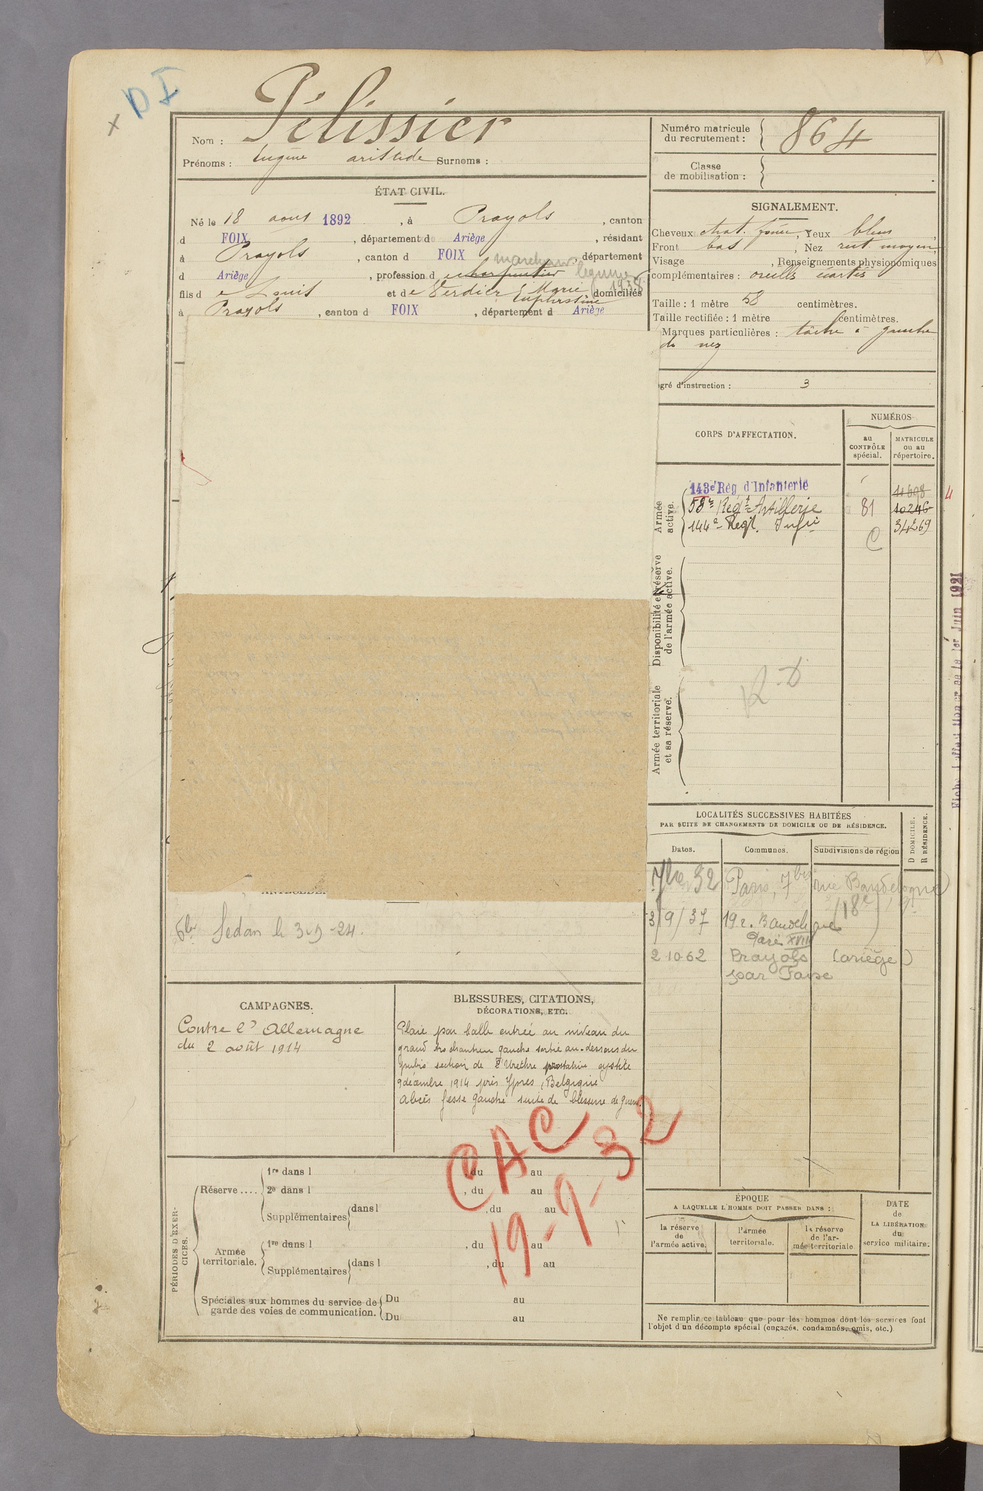 + D I
Nom : Pélissier
Prénoms : Eugène aristide Surnoms :
Numéro matricule du recrutement : 864
Classe de mobilisation :
ÉTAT CIVIL.
Né le 18 aout 1892, à Prayols, canton
d FOIX, département d Ariège, résidant
à Prayols, canton d FOIX, département
d Ariège, profession d charpentier
marchand légumes 1938
fils d e Louis et de Verdier Marie Euphrosine domiciliés
à Prayols, canton d FOIX, département d Ariège
SIGNALEMENT.
Cheveux chat. foncé, Yeux bleus
Front bas, Nez rect. moyen
Visage , Renseignements physionomiques
complémentaires : oreilles écartées
Taille : 1 mètre 58 centimètres.
Taille rectifiée : 1 mètre centimètres.
Marques particulières : tache à gauche
du nez
gré d'instruction : 3
CORPS D'AFFECTATION.
NUMÉROS
au CONTRÔLE spécial.
MATRICULE ou au répertoire.
Armée active.
143e Rég d'Infanterie
58e Régt Artillerie 81 10246
144e Regt Infie 34269
C
Disponibilité et réserve de l'armée active.
Armée territoriale et sa réserve.
R-D
4
1er Juin 1921
LOCALITÉS SUCCESSIVES HABITÉES
PAR SUITE DE CHANGEMENTS DE DOMICILE OU DE RÉSIDENCE.
Dates. Communes. Subdivisions de région
D DOMICILE.
R RÉSIDENCE.
7bre 32 Paris, 7bis rue Baudelique
(18e)
3/9/37 19 r. Baudelique
Paris XVIII
2 10 62 Prayols (Ariège)
par Foix
Sedan le 3-9-24.
CAMPAGNES.
Contre l'Allemagne
du 2 août 1914
BLESSURES, CITATIONS,
DÉCORATIONS, ETC.
Plaie par balle entrée au niveau du
grand trochanter gauche sortie au-dessous du
pubis section de l'Urèthre prostatine cystite
9 décembre 1914 près Ypres, (Belgique
Abcès fesse gauche suite de blessure de guerre.
CAC
19-9-32
PÉRIODES D'EXERCICES.
Réserve....
1re dans l , du au
2e dans l , du au
Supplémentaires dans l , du au
Armée territoriale.
1re dans l , du au
Supplémentaires dans l , du au
Spéciales aux hommes du service de garde des voies de communication.
Du au
Du au
ÉPOQUE
A LAQUELLE L'HOMME DOIT PASSER DANS :
la réserve de l'armée active.
l'armée territoriale.
la réserve de l'armée territoriale
DATE de LA LIBÉRATION du service militaire.
Ne remplir ce tableau que pour les hommes dont les services font
l'objet d'un décompte spécial (engagés, condamnés, omis, etc.)